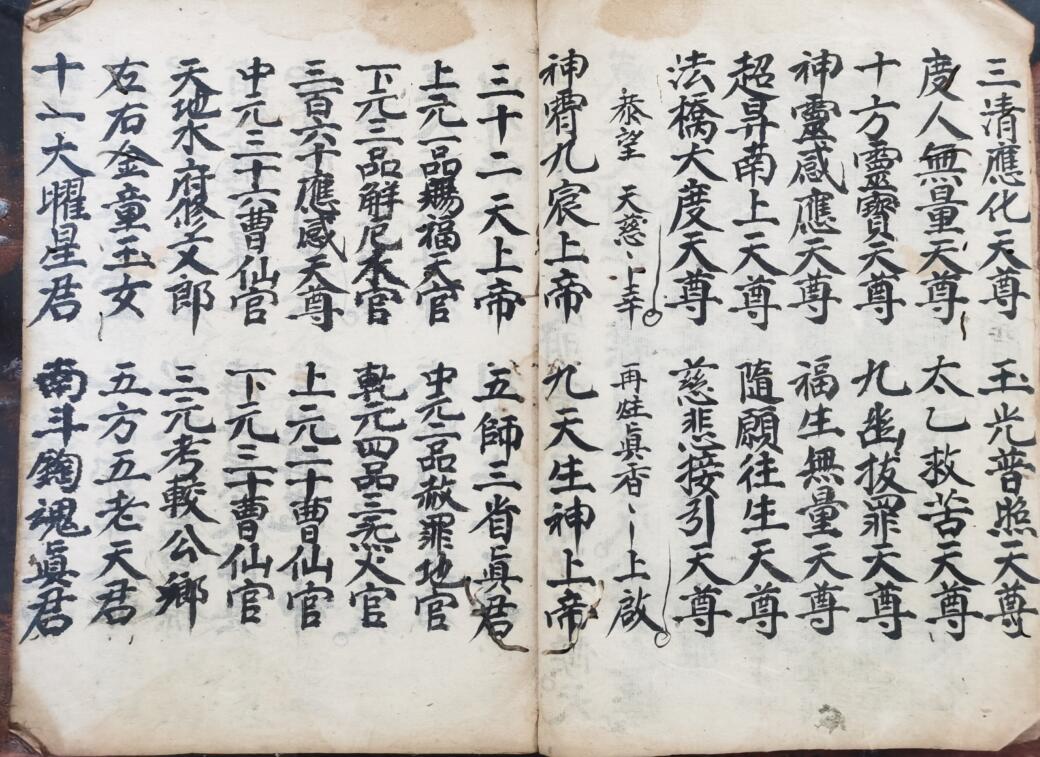 三清應化天尊 玉光普照天尊
度人無量天尊 太乙救苦天尊
十方靈寶天尊 九坐拔罪天尊
神靈感應天尊 福生無量天尊
超昇南上天尊 隨願往生天尊
法橋大度天尊 慈悲接引天尊
恭望 天慈丶丨上幸 再炷真香丶丨上啟
神霄九宸上帝 九天生神上帝
三十二天上帝 五師三省眞君
上元一品賜福天官 中元二品赦罪地官
下元三品解厄水官 乾元四品三炁火官
三百六十應感天尊 上元二十曹仙官
中元三十六曹仙官 下元三十曹仙官
天地水府修文郎 三元考較公卿
左右金童玉女 五方五老天君
十一大曜星君 南斗魂眞君